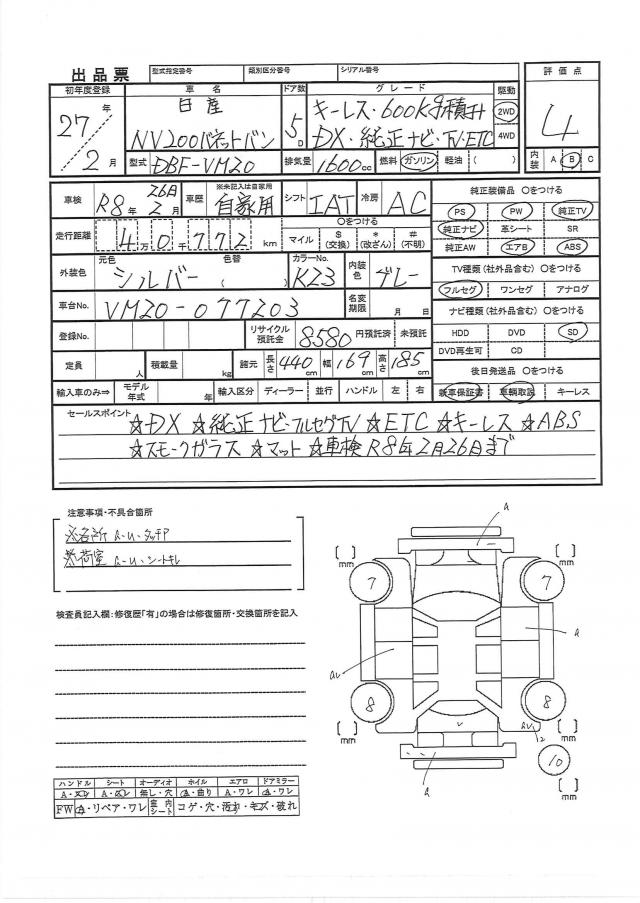 出品票 型式指定番号 類別区分番号 シリアル番号
初年度登録 車名 ドア数 グレード 駆動 評価点
27年2月 日産 5D キーレス・600kg積 2WD 4
NV200バネットバン DX・純正ナビ・TV・ETC 4WD
型式 DBF-VM20 排気量 1600cc 燃料 ガソリン・軽油( ) 内装 A B C
車検 R8年2月26日 車歴 ※未記入は自家用 自家用 シフト IAT 冷房 AC 純正装備品 〇をつける
PS PW 純正TV
走行距離 4万0千772km 〇をつける
マイル $(交換) *(改ざん) #(不明)
純正ナビ 革シート SR
純正AW エアB ABS
外装色 元色 シルバー 色替 ( ) カラーNo. K23 内装色 グレー
TV種類(社外品含む) 〇をつける
フルセグ ワンセグ アナログ
車台No. VM20-077203 名変期限 月 日
ナビ種類(社外品含む) 〇をつける
登録No. リサイクル預託金 8580 円預託済 未預託
HDD DVD SD
DVD再生可 CD
定員 人 積載量 kg 諸元 長さ 440cm 幅 169cm 高さ 185cm
後日発送品 〇をつける
輸入車のみ⇒ モデル年式 年 輸入区分 ディーラー 並行 ハンドル 左 右
新車保証書 車輌取説 キーレス
セールスポイント
☆DX ☆純正ナビ・フルセグTV ☆ETC ☆キーレス ☆ABS
☆スモークガラス ☆マット ☆車検R8年2月26日まで
注意事項・不具合箇所
※各所 A-U・タッチP
※荷室 A-U・シートキレ
検査員記入欄:修復歴「有」の場合は修復箇所・交換箇所を記入
A
[ ] mm [ ] mm
7 7
A
AU
8 8
AU2
[ ] mm [ ] mm
10
A
[ ] mm
ハンドル シート オーディオ ホイル エアロ ドアミラー
A・スレ A・スレ 無し・穴 A・曲り A・ワレ A・ワレ
FW A・リペア・ワレ 室内シート コゲ・穴・汚れ・キズ・破れ